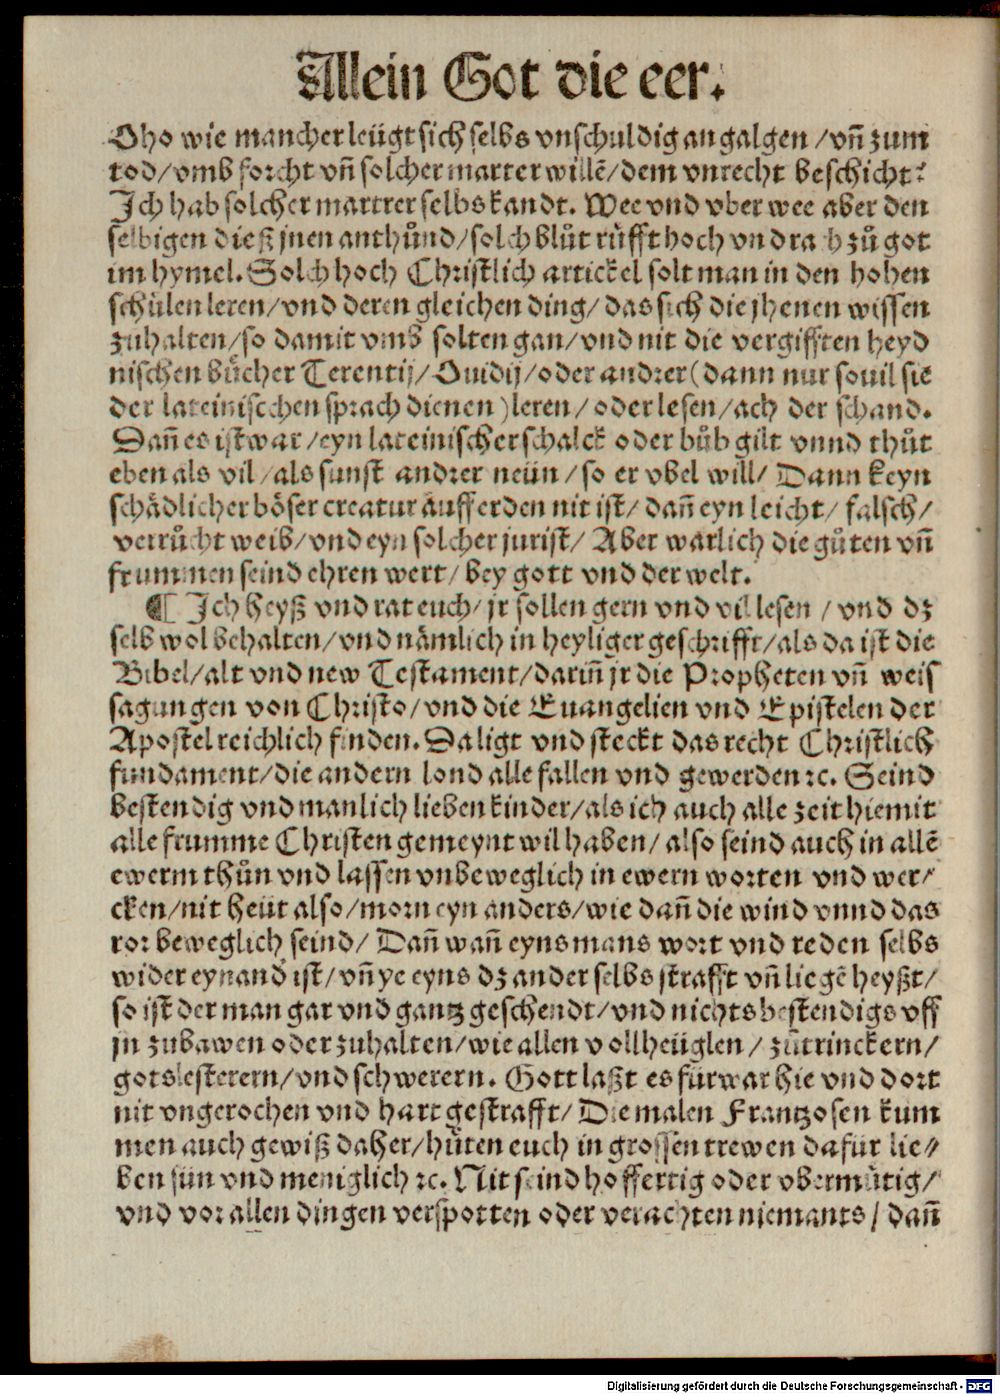 Allein Got die eer.
Oho wie mancher leügt sich selbs vnschuldig an galgen / vñ zum
tod / vmb forcht vñ solcher marter willẽ / dem vnrecht beschicht?
Ich hab solcher martrer selbs kandt. Wee vnd vber wee aber den
selbigen die ß jnen anthůnd / solch blůt růfft hoch vnd rach zů got
im hymel. Solch hoch Christlich artickel solt man in den hohen
schůlen leren / vnd deren gleichen ding / das sich die jhenen wissen
zuhalten / so damit vmb solten gan / vnd nit die vergifften heyd
nischen bůcher Terentij / Ouidij / oder andrer (dann nur souil sie
der lateinisechen sprach dienen ) leren / oder lesen / ach der schand.
Dañ es ist war / eyn lateinischer schalck oder bůb gilt vnnd thůt
eben als vil / als sunst andrer neün / so er vbel will / Dann keyn
schådlicher böser creatur auff erden nit ist / dañ eyn leicht / falsch /
verrůcht weib / vnd eyn solcher jurist / Aber warlich die gůten vñ
frummen seind ehren wert / bey gott vnd der welt.
¶ Ich heyß vnd rat euch / jr sollen gern vnd vil lesen / vnd dz
selb wol behalten / vnd nåmlich in heyliger geschrifft / als da ist die
Bibel / alt vnd new Testament / dariñ jr die Propheten vñ weis
sagungen von Christo / vnd die Euangelien vnd Epistelen der
Apostel reichlich finden. Da ligt vnd steckt das recht Christlich
fundament / die andern lond alle fallen vnd gewerden ꝛc. Seind
bestendig vnd manlich lieben kinder / als ich auch alle zeit hiemit
alle frumme Christen gemeynt wil haben / also seind auch in allẽ
ewerm thůn vnd lassen vnbeweglich in ewern worten vnd wer⸗
cken / nit heüt also / morn eyn anders / wie dañ die wind vnnd das
ror beweglich seind / Dañ wañ eyns mans wort vnd reden selbs
wider eynand ist / vñ ye eyns dz ander selbs strafft vñ liegẽ heyßt /
so ist der man gar vnd gantz geschendt / vnd nichts bestendigs vff
jn zubawen oder zuhalten / wie allen vollheüglen / zůtrinckern /
gotslesterern / vnd schwerern. Gott laßt es fürwar hie vnd dort
nit vngerochen vnd hart gestrafft / Die malen Frantzosen kum
men auch gewiß daher / hůten euch in grossen trewen dafür lie⸗
ben sün vnd meniglich ꝛc. Nit seind hoffertig oder vbermůtig /
vnd vor allen dingen verspotten oder verachten niemants / dañ
Digitalisierung gefördert durch die Deutsche Forschungsgemeinschaft - DFG